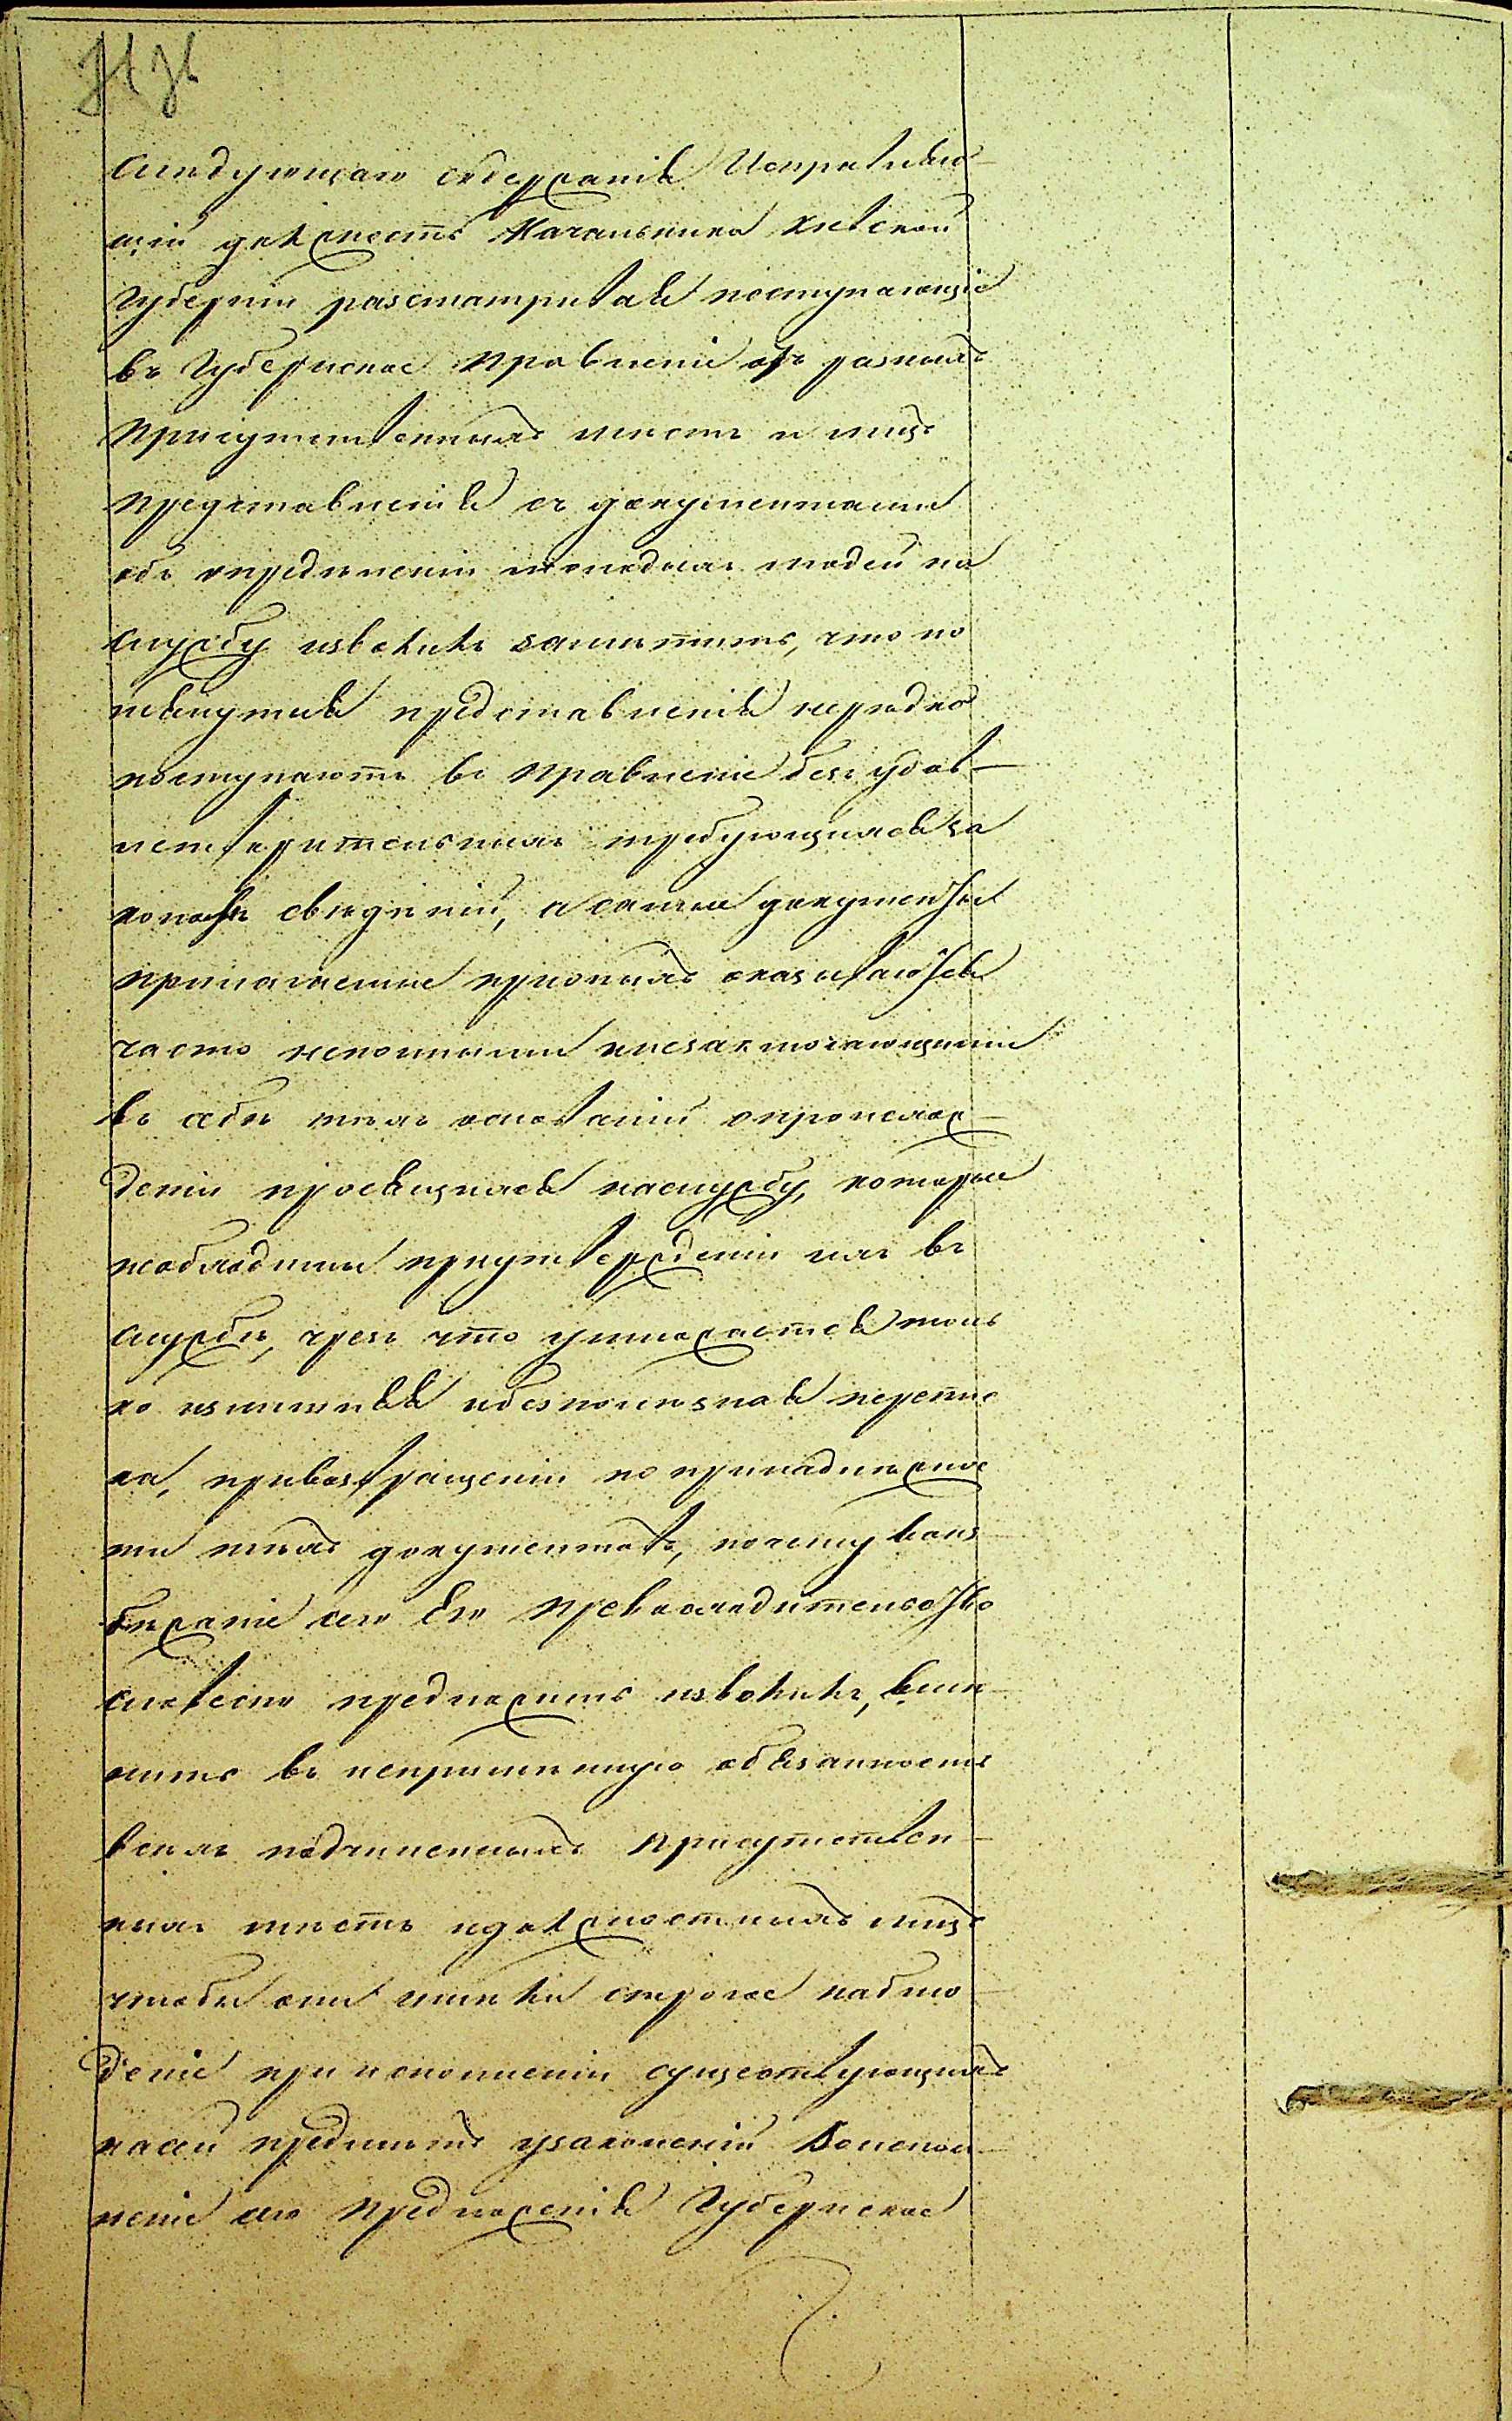 следующаго содержанія Исправляю-
щій должность Начальника Кіевской
Губерніи разсматривая поступающіе
въ Губернское Правленіе отъ разныхъ
Присутственныхъ мѣстъ и лицъ
представленія съ документами
объ опредѣленіи молодыхъ людей на
службу изволилъ замѣтить, что по
мянутыя представленія нерѣдко
поступаютъ въ Правленіе безъ удов-
летворительныхъ требующихся за
кономъ свѣдѣній, а самые документы
прилагаемые при оныхъ оказываются
часто неполными инезаключающими
въ себѣ тѣхъ основаній опроисхож-
деніи просящихся наслужбу, которые
необходимы приутвержденіи ихъ въ
службѣ, чрезъ что умножается толь
ко излишняя ибезполезная перепис
ка, привозвращеніи по принадлежнос
ти тѣхъ документовъ, почему воиз
бѣжаніе сего Его Превосходительство
словесно предложить изволилъ, вмѣ-
нить въ непремѣнную обязанность
всѣмъ подчиненнымъ Присутствен-
нымъ мѣстамъ идолжностнымъ лицамъ
чтобы они имѣли строгое наблю-
деніе при исполненіи существующихъ
насей предметъ узаконеній Воиспол-
неніе сего предложенія Губернское